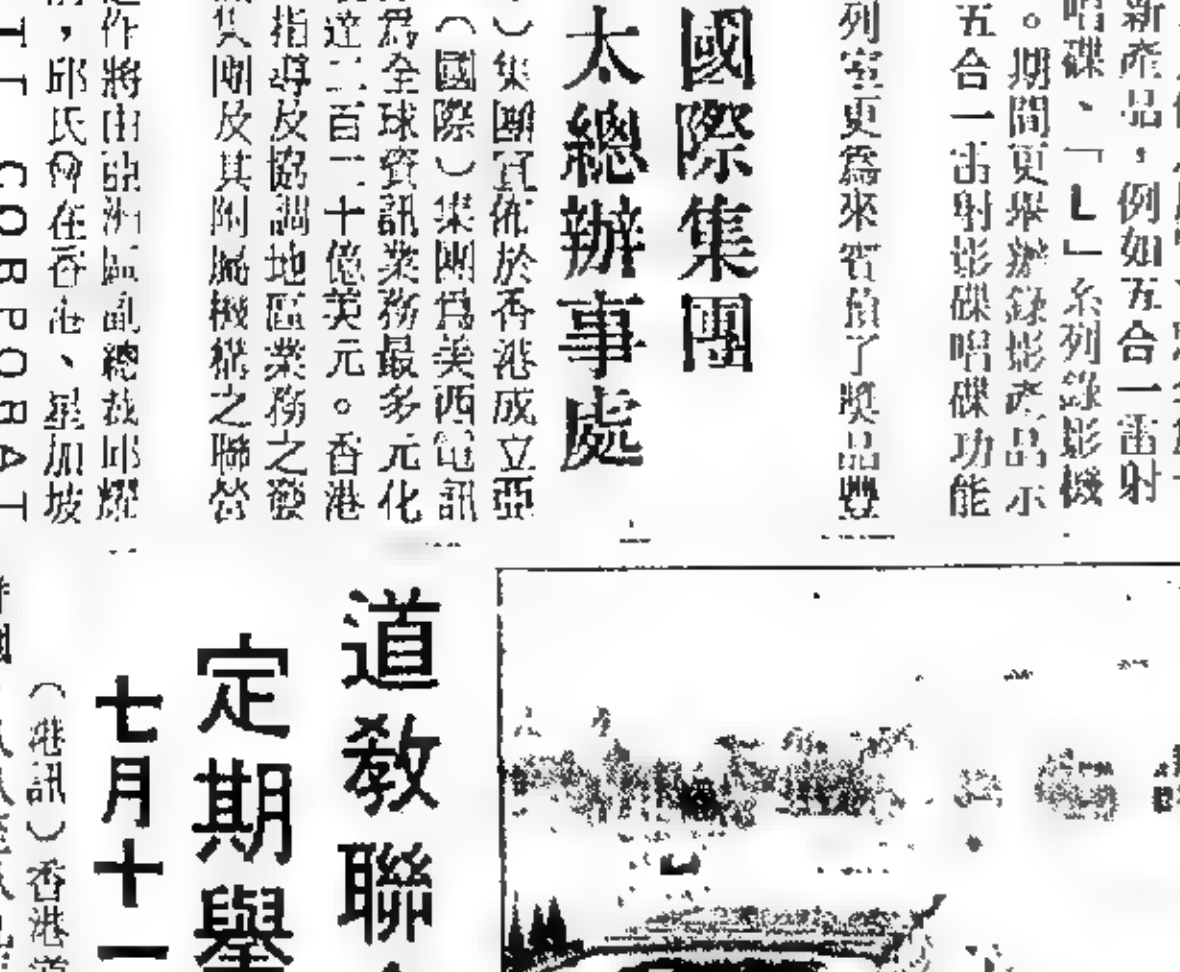 新產品，例如五合一雷射
唱碟、「L」系列錄影機
。期間更舉辦錄影產品示
五合一雷射影碟唱碟功能
列室更為來賓預了獎品豐
國際集團
太總辦事處
）集團宣佈於香港成立亞
（國際）集團為美西電訊
為全球資訊業務最多元化
達二百一十億美元。香港
指導及協調地區業務之發
集團及其附屬機構之聯營
作將由亞洲區副總裁邱耀
，邱氏會在香港、星加坡
CORPORAT
道教聯
定期舉
七月十一
（港訊）香港道